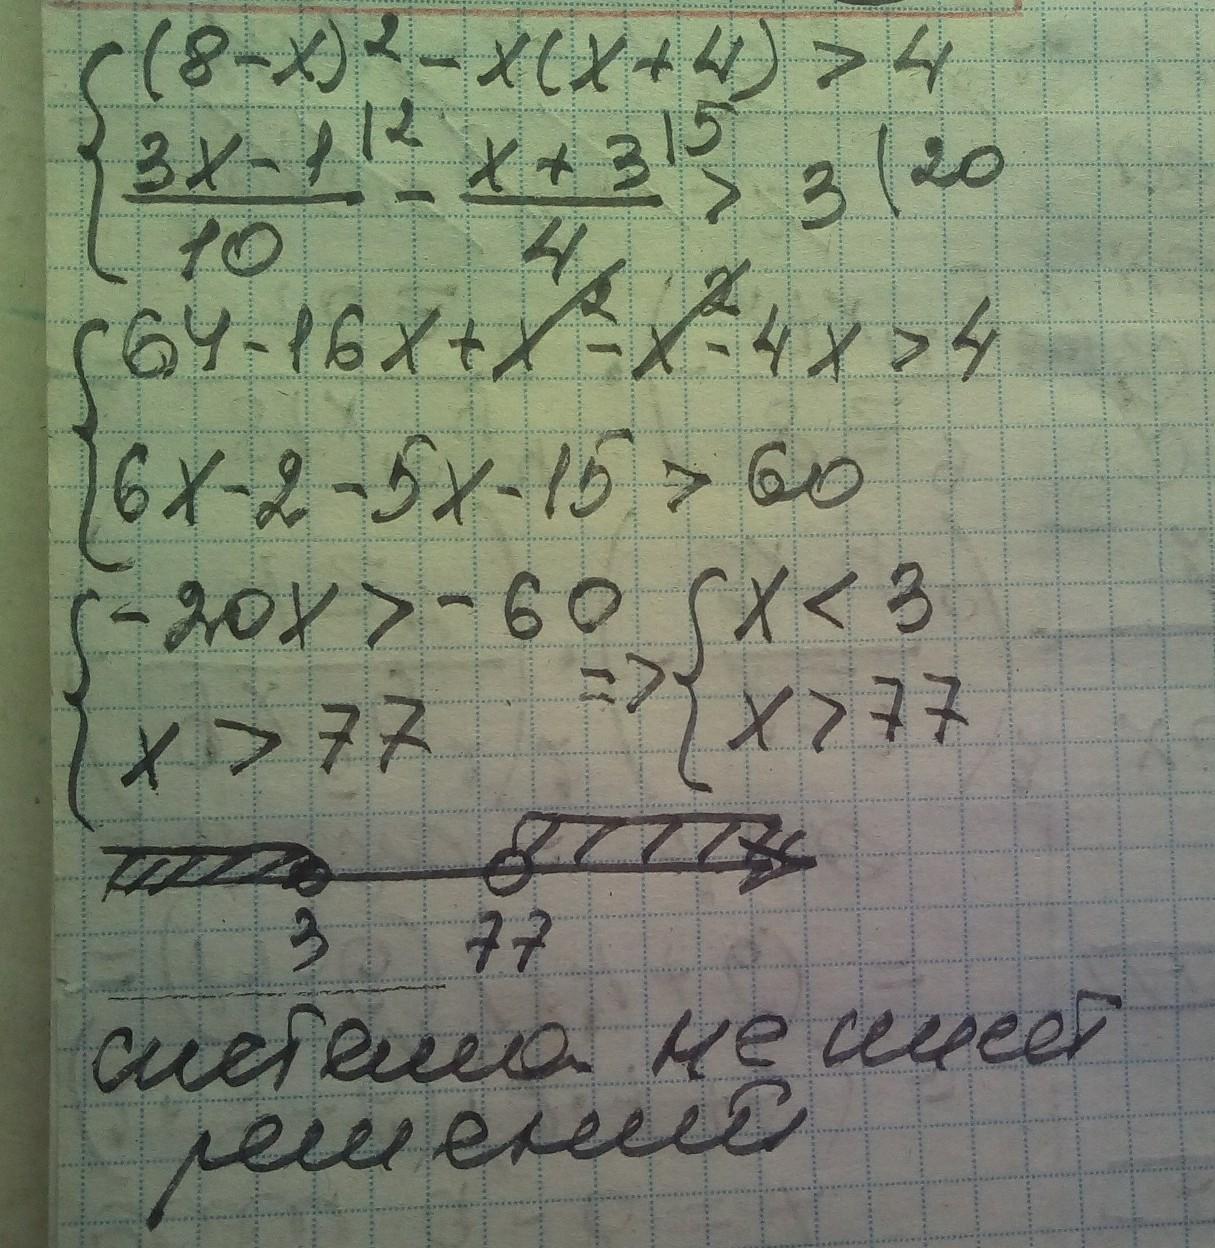 (8-x)² - x(x+4) > 4
3x-1|2 / 10 - x+3|5 / 4 > 3 |20
64-16x+x²-x²-4x>4
6x-2-5x-15>60
-20x>-60 => x<3
x>77 x>77
3 77
система не имеет
решений